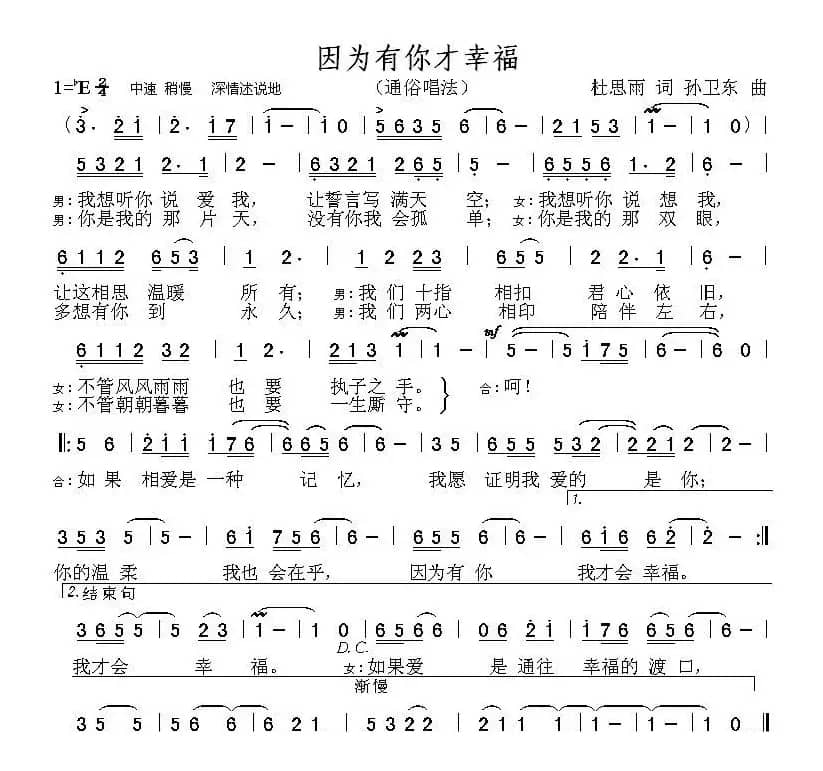 因为有你才幸福
1=♭E 2/4 中速 稍慢 深情述说地 （通俗唱法） 杜思雨 词 孙卫东 曲
( 3· 2 1 | 2· 1 7 | 1 - | 1 0 | 5 6 3 5 6 | 6 - | 2 1 5 3 | 1 - | 1 0 ) |
5 3 2 1 2· 1 | 2 - | 6 3 2 1 2 6 5 | 5 - | 6 5 5 6 1· 2 | 2 - |
男:我想听你 说 爱 我, 让誓言写 满天 空; 女:我想听你 说 想 我,
男:你是我的 那 片 天, 没有你我 会孤 单; 女:你是我的 那 双 眼,
6 1 1 2 6 5 3 | 1 2· | 1 2 2 3 | 6 5 5 | 1 2 1 6 | 2 - |
让这相思 温暖 所 有; 男:我 们 十指 相扣 君 心 依 旧,
多想有你 到 永 久; 男:我 们 两心 相印 陪 伴 左 右,
mf
6 1 1 2 3 2 | 1 2· | 2 1 3 1 | 1 - | 5 - | 5 1 7 5 | 6 - | 6 0 |
女:不管风风雨雨 也 要 执子之 手。 合:呵!
女:不管朝朝暮暮 也 要 一生厮 守。
‖: 5 6 | 2 1 1 1 7 6 | 6 6 5 6 | 6 - | 3 5 | 6 5 5 5 3 2 | 2 2 1 2 | 2 - |
合:如 果 相爱是 一种 记 忆, 我愿 证明我 爱的 是 你;
1.
3 5 3 5 | 5 - | 6 1 7 5 6 | 6 - | 6 5 5 6 | 6 - | 6 1 6 2 | 2 - :‖
你的温 柔 我也 会在乎, 因为有 你 我才会 幸福。
2.结束句
3 6 5 5 | 5 2 3 | 1 - | 1 0 | 6 5 6 6 | 0 6 2 1 | 1 7 6 6 5 6 | 6 - |
D.C.
我才会 幸 福。 女:如果爱 是 通往 幸福的 渡 口,
渐慢
3 5 5 | 5 6 6 | 6 2 1 | 5 3 2 2 | 2 1 1 1 | 1 - | 1 - | 1 0 ‖